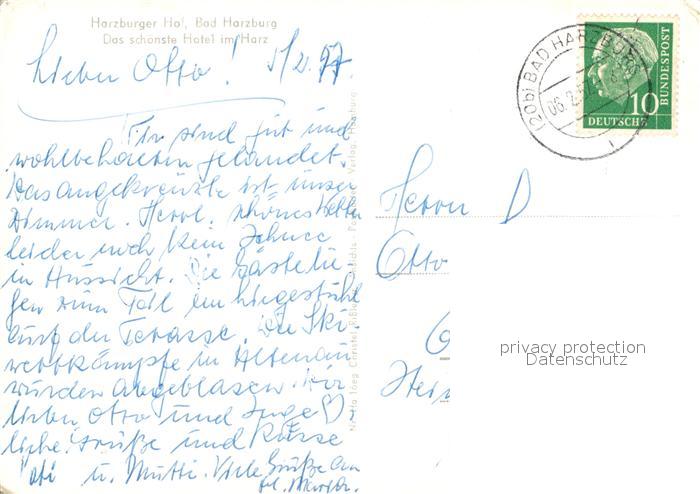 Harzburger Hof, Bad Harzburg
Das schönste Hotel im Harz
Lieber Otto! 5/2. 57.
Wir sind gut und
wohlbehalten gelandet.
Das angekreuzte ist unser
Zimmer. Herrl. schönes Wetter
leider noch kein Schnee
in Aussicht. Die Gäste lie-
gen zum Teil im Liegestuhl
auf der Terasse. Die Ski-
wettkämpfe in Altenau
wurden abgeblasen. Wir
lieber Otto und Inge
liche Grüße und Küsse
u. Mutti. Viele Grüße an
Verlag, Hamburg
(20b) BAD HARZBURG
06.2.57
10
DEUTSCHE
BUNDESPOST
Herrn D
Otto
privacy protection
Datenschutz